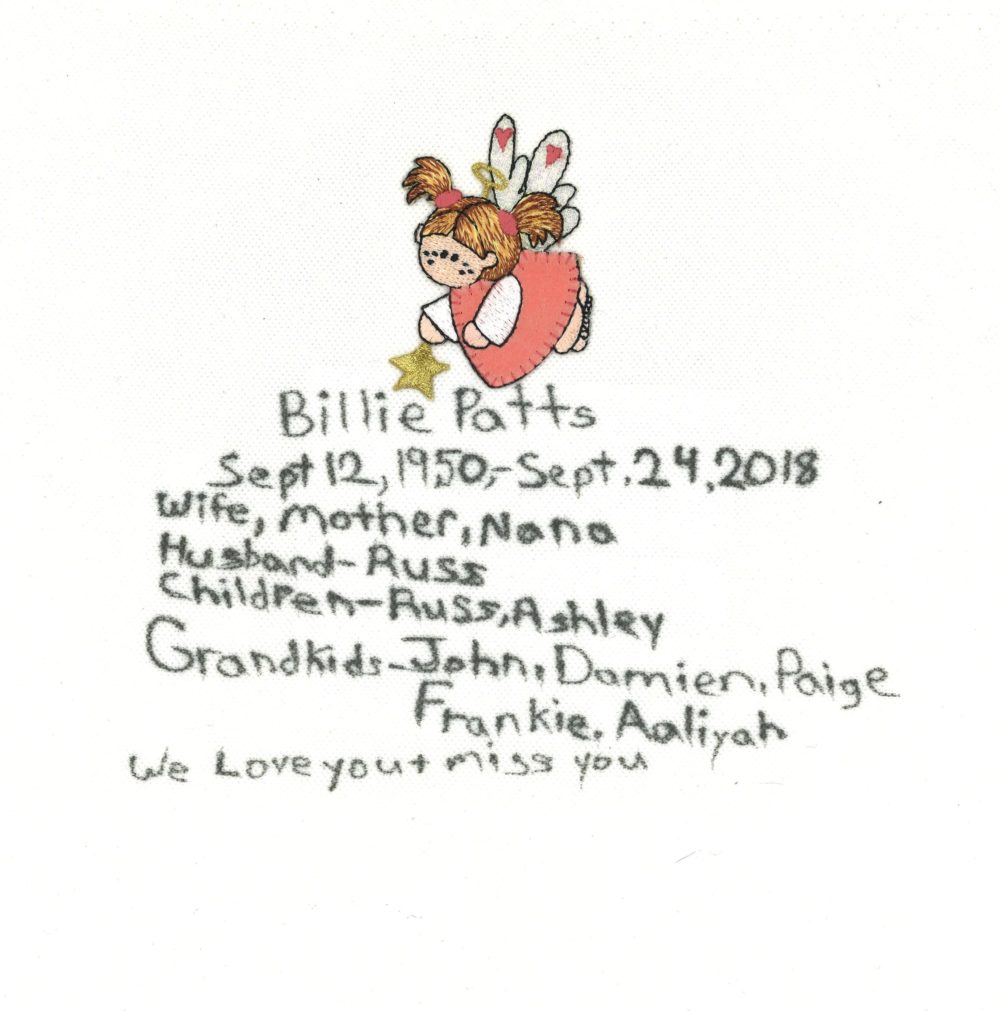 Billie Patts
Sept 12, 1950,-Sept.24,2018
Wife, Mother, Nana
Husband-Russ
Children-Russ, Ashley
Grandkids-John, Damien, Paige
Frankie. Aaliyah
We Love you + miss you